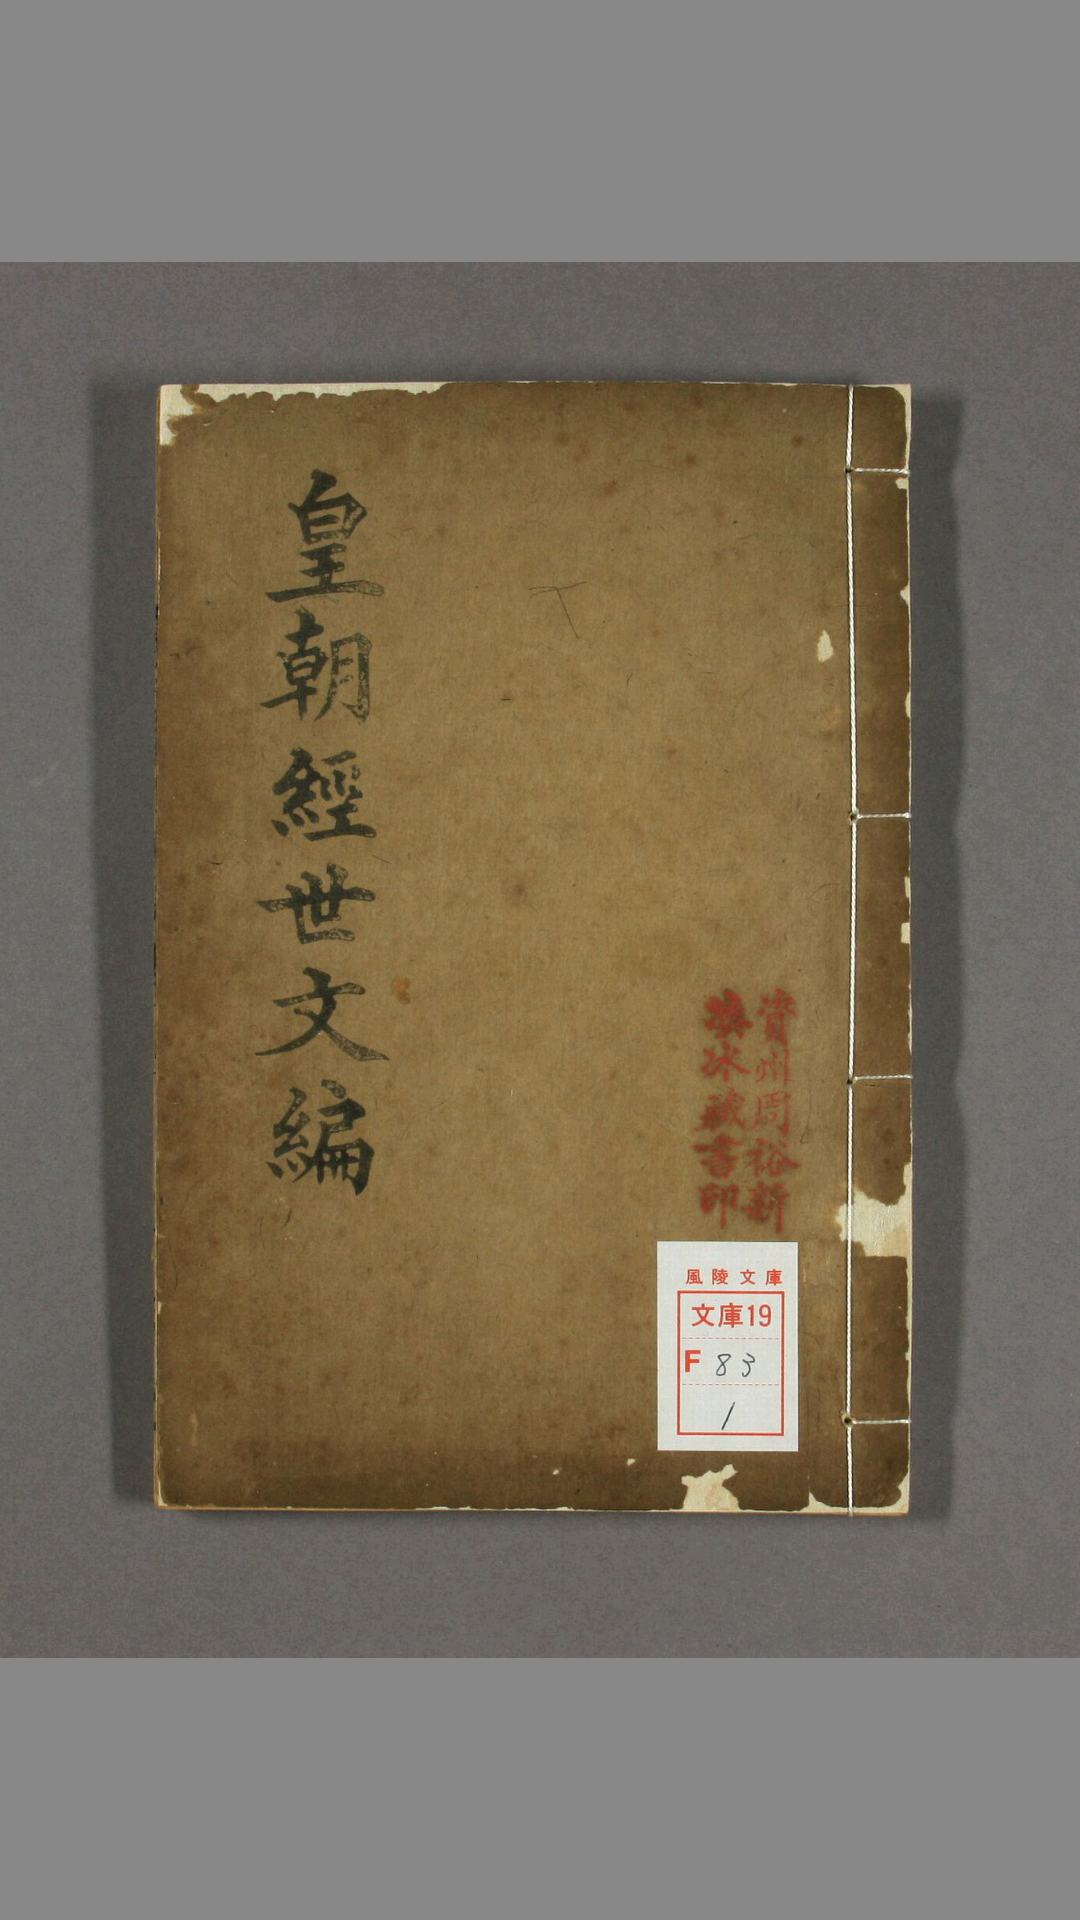 皇朝經世文編
資州周裕新
冰藏書印
風陵文庫
文庫19
F 83
1